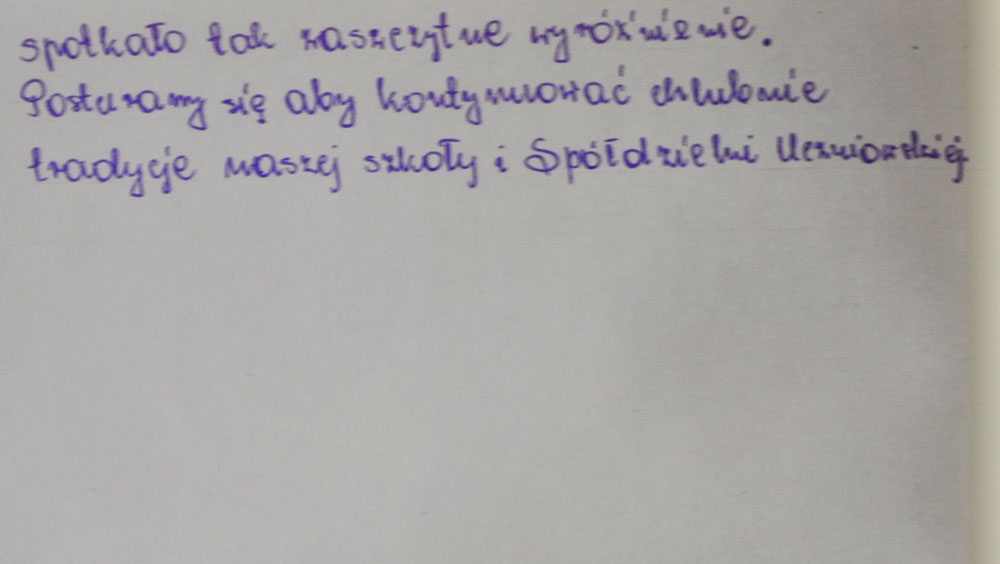 spotkało tak zaszczytne wyróżnienie.
Postaramy się aby kontynuować chlubnie
tradycje naszej szkoły i Spółdzielni Uczniowskiej